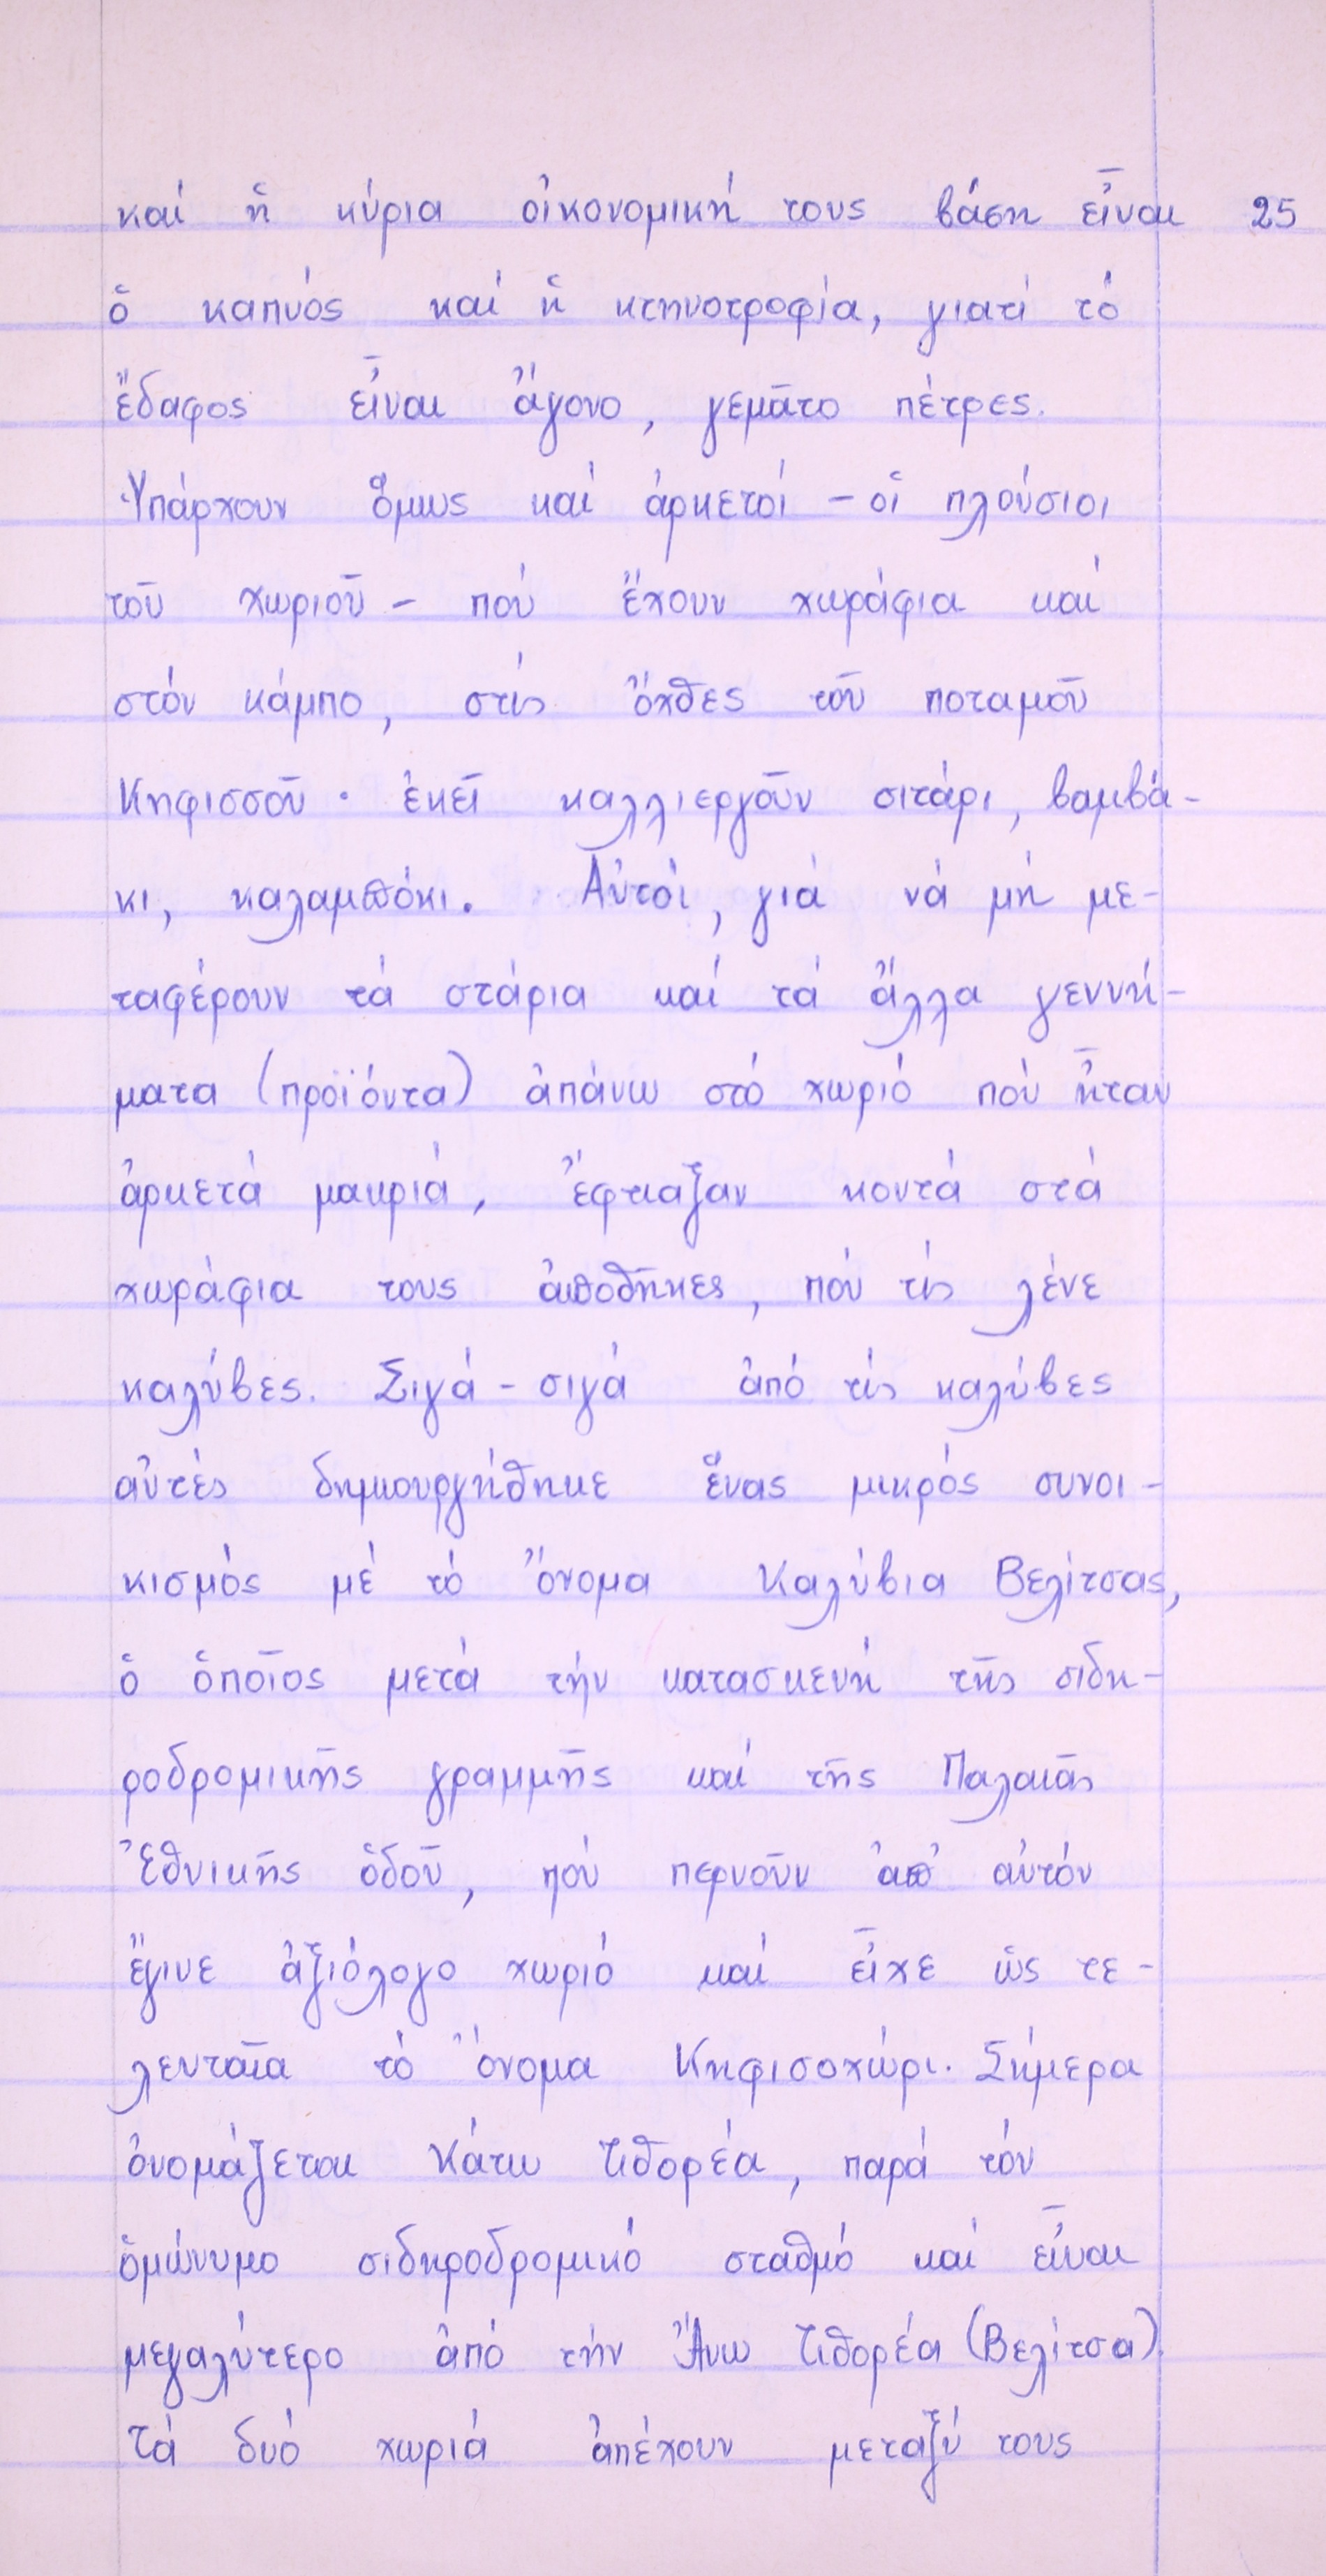 καί ἡ κύρια οἰκονομική τους βάση εἶναι 25
ὁ καπνός καί ἡ κτηνοτροφία, γιατί τό
ἔδαφος εἶναι ἄγονο, γεμᾶτο πέτρες.
Ὑπάρχουν ὅμως καί ἀρκετοί - οἱ πλούσιοι
τοῦ χωριοῦ - πού ἔχουν χωράφια καί
στόν κάμπο, στίς ὄχθες τοῦ ποταμοῦ
Κηφισσοῦ· ἐκεῖ καλλιεργοῦν σιτάρι, βαμβά-
κι, καλαμπόκι. Αὐτοί, γιά νά μή με-
ταφέρουν τά στάρια καί τά ἄλλα γεννή-
ματα (προϊόντα) ἀπάνω στό χωριό πού ἦταν
ἀρκετά μακριά, ἔφτιαξαν κοντά στά
χωράφια τους ἀποθῆκες, πού τίς λένε
καλύβες. Σιγά - σιγά ἀπό τίς καλύβες
αὐτές δημιουργήθηκε ἕνας μικρός συνοι-
κισμός μέ τό ὄνομα Καλύβια Βελίτσας,
ὁ ὁποῖος μετά τήν κατασκευή τῆς σιδη-
ροδρομικῆς γραμμῆς καί τῆς Παλαιᾶς
Ἐθνικῆς ὁδοῦ, πού περνοῦν ἀπ' αὐτόν
ἔγινε ἀξιόλογο χωριό καί εἶχε ὥς τε-
λευταῖα τό ὄνομα Κηφισοχώρι. Σήμερα
ὀνομάζεται Κάτω Τιθορέα, παρά τόν
ὁμώνυμο σιδηροδρομικό σταθμό καί εἶναι
μεγαλύτερο ἀπό τήν Ἄνω Τιθορέα (Βελίτσα).
Τά δυό χωριά ἀπέχουν μεταξύ τους